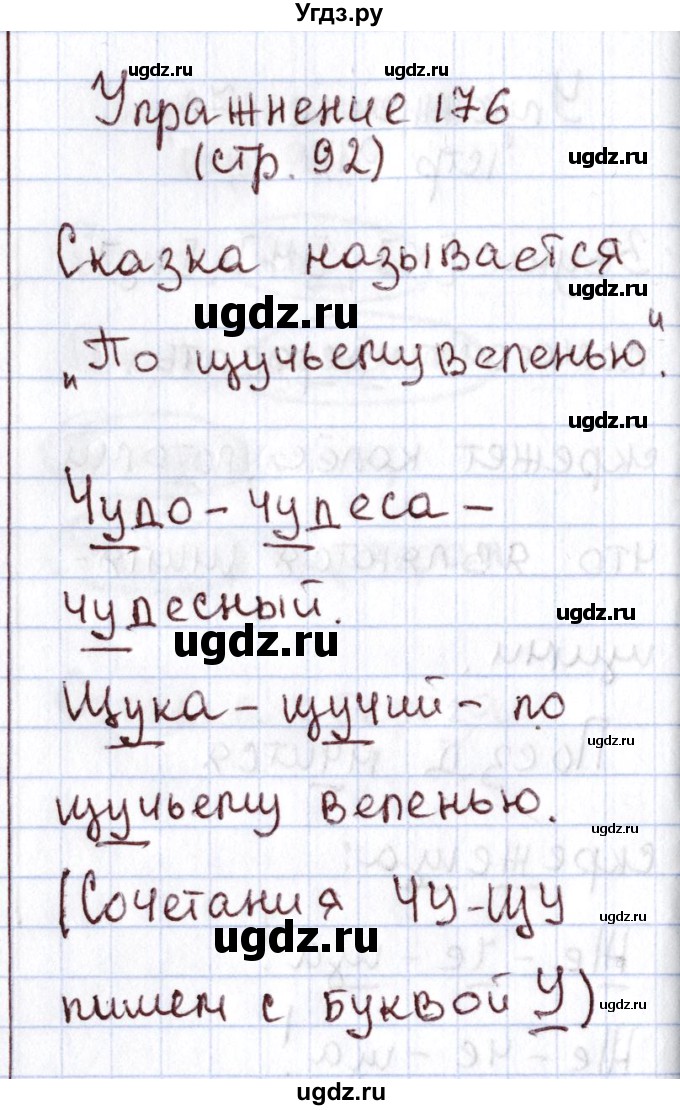 Угдз.ру
ugdz.ru ugdz.ru
Упражнение 176
(стр. 92) ugdz.ru
Сказка называется
ugdz.ru
ugdz.ru
„По щучьему веленью“.
ugdz.ru
Чудо - чудеса -
чудесный. ugdz.ru
ugdz.ru
Щука - щучий - по
ugdz.ru
щучьему веленью.
ugdz.ru
(Сочетания ЧУ-ЩУ
ugdz.ru
ugdz.ru
пишем с буквой У)
ugdz.ru
ugdz.ru